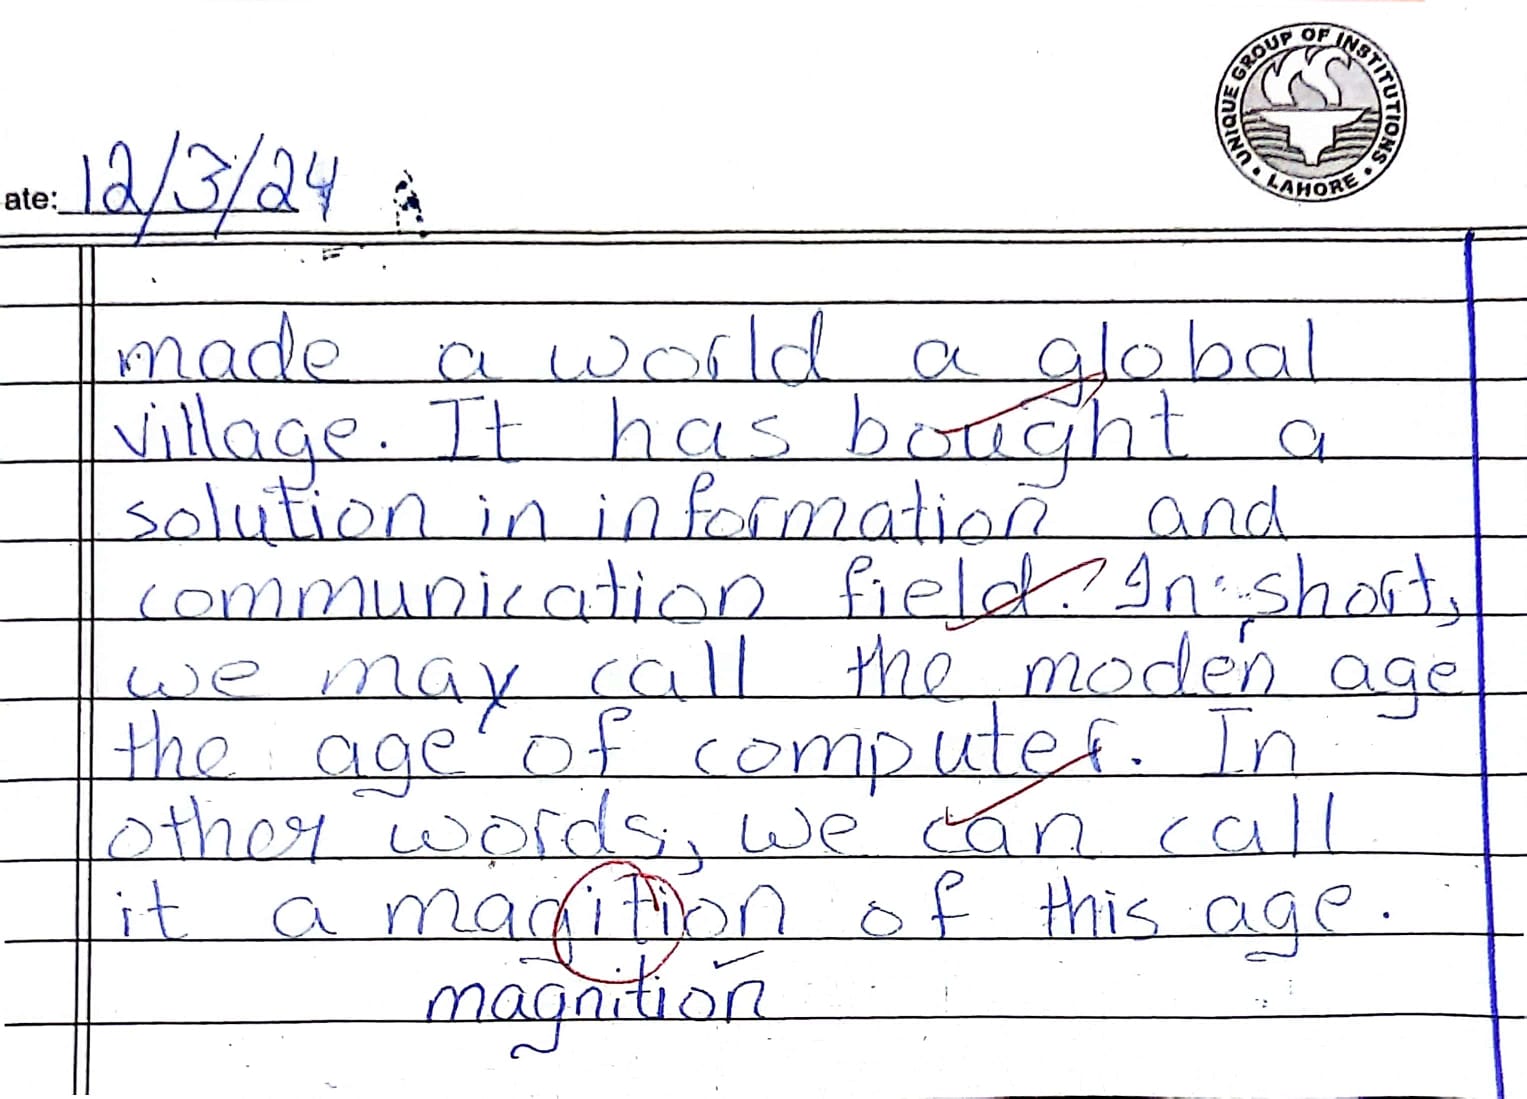 UNIQUE GROUP OF INSTITUTIONS
• LAHORE •
ate: 12/3/24
made a world a global
village. It has bought a
solution in information and
communication field. In short,
we may call the modern age
the age of computer. In
other words, we can call
it a magition of this age.
magnition